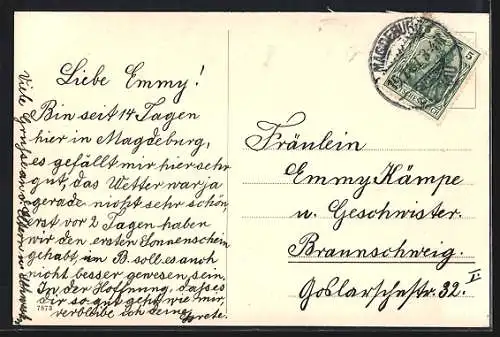 Liebe Emmy!
Bin seit 14 Tagen
hier in Magdeburg,
es gefällt mir hier sehr
gut, das Wetter war ja
gerade nicht sehr schön,
erst vor 2 Tagen haben
wir den ersten Sonnenschein
gehabt, im B. soll es auch
nicht besser gewesen sein.
In der Hoffnung, dass es
dir so gut geht wie mir,
verbleibe ich deine Grete.
Viele Grüsse an d. Eltern u.
7873
MAGDEBURG
5
Fräulein
Emmy Kämpe
u. Geschwister.
Braunschweig.
Goslarschestr. 32. I.